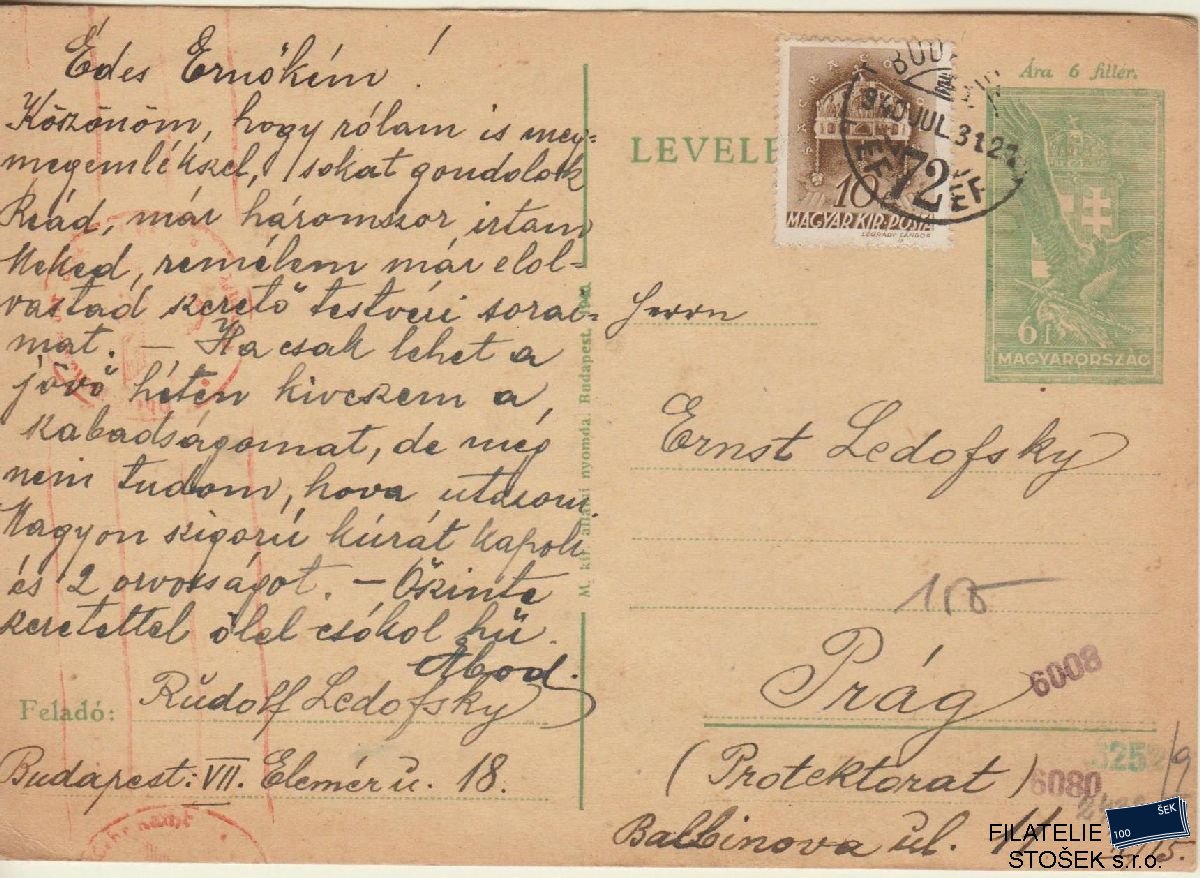 Édes Ernőkém!
Köszönöm, hogy rólam is meg-
megemlékszel, sokat gondolok
Reád, már háromszor irtam
Neked, remélem már elol-
vastad szerető testvéri sorai-
mat. — Ha csak lehet a
jövő héten kiveszem a
szabadságomat, de még
nem tudom, hova utazom.
Nagyon szigorú kúrát kapok
és 2 orvosságot. — Őszinte
szeretettel ölel csókol hű
Feladó: Rudolf Ledofsky
Budapest: VII. Elemér u. 18.
M. kir. állami nyomda. Budapest.
LEVELE
Ára 6 fillér.
6 f
MAGYARORSZÁG
10
MAGYAR KIR. POSTA
LÉGRÁDY SÁNDOR
BUD
940 JUL. 31. 2
72
Herrn
Ernst Ledofsky
Prág
6008
(Protektorat)
6080
Balbinova ul. 11
FILATELIE
STOŠEK s.r.o.
100
ŠEK